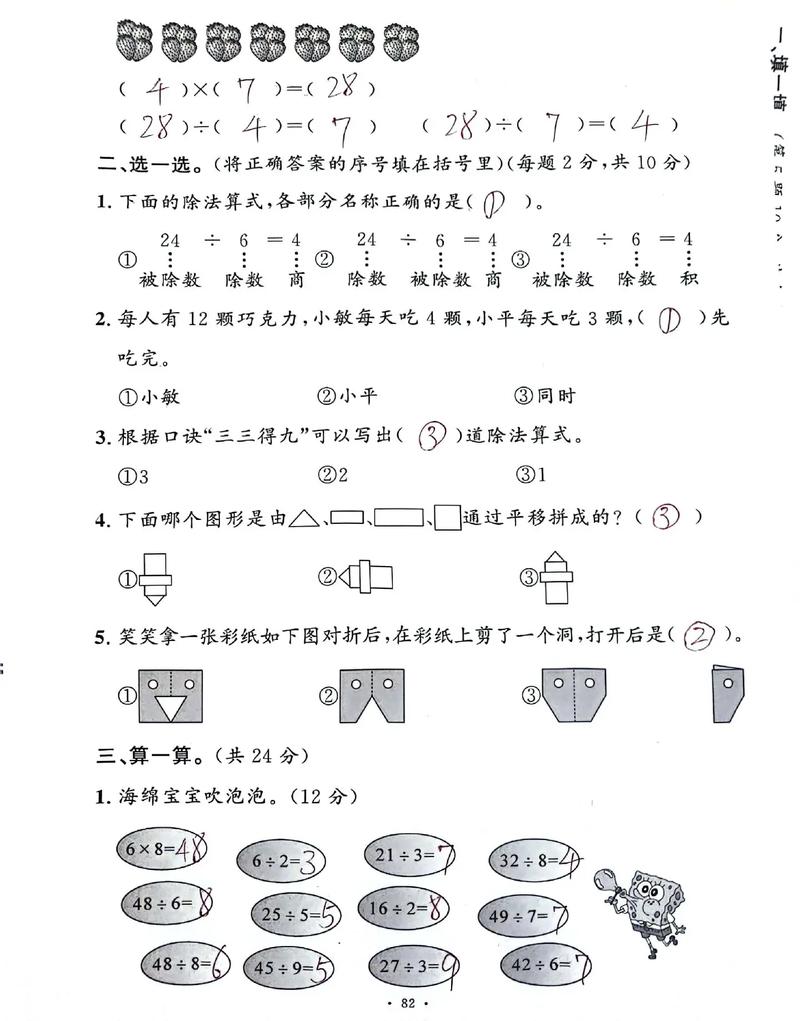 ( 4 )×( 7 )=( 28 )
( 28 )÷( 4 )=( 7 ) ( 28 )÷( 7 )=( 4 )
二、选一选。(将正确答案的序号填在括号里)(每题 2 分,共 10 分)
1. 下面的除法算式,各部分名称正确的是( ① )。
① 24 ÷ 6 = 4 ② 24 ÷ 6 = 4 ③ 24 ÷ 6 = 4
被除数 除数 商 除数 被除数 商 被除数 除数 积
2. 每人有 12 颗巧克力,小敏每天吃 4 颗,小平每天吃 3 颗,( ① )先
吃完。
①小敏 ②小平 ③同时
3. 根据口诀“三三得九”可以写出( ③ )道除法算式。
①3 ②2 ③1
4. 下面哪个图形是由△、▭、▭、□通过平移拼成的?( ③ )
① ② ③
5. 笑笑拿一张彩纸如下图对折后,在彩纸上剪了一个洞,打开后是( ② )。
① ② ③
三、算一算。(共 24 分)
1. 海绵宝宝吹泡泡。(12 分)
6×8=48 6÷2=3 21÷3=7 32÷8=4
48÷6=8 25÷5=5 16÷2=8 49÷7=7
48÷8=6 45÷9=5 27÷3=9 42÷6=7
· 82 ·
一、填一填